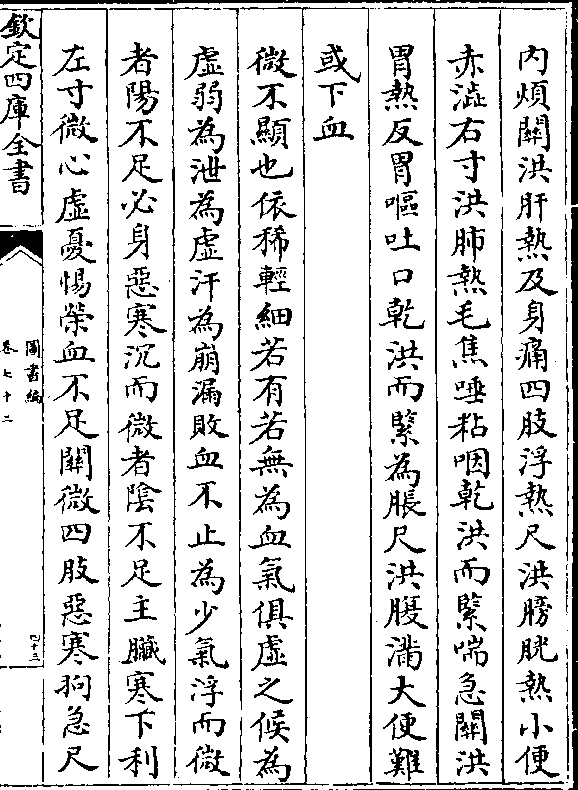 內煩關洪肝熱及身痛四肢浮熱尺洪膀胱熱小便
赤澁右寸洪肺熱毛焦唾粘咽乾洪而緊喘急關洪
胃熱反胃嘔吐口乾洪而緊為脹尺洪腹滿大便難
或下血
微不顯也依稀輕細若有若無為血氣俱虛之候為
虛弱為泄為虛汗為崩漏敗血不止為少氣浮而微
者陽不足必身惡寒沉而微者陰不足主臟寒下利
左寸微心虛憂惕榮血不足關微四肢惡寒拘急尺
欽定四庫全書
圖書編
卷七十二